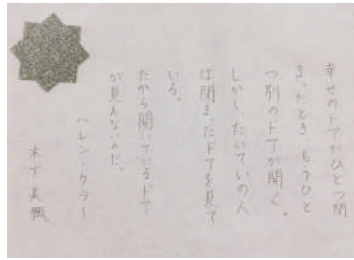 幸せのドアがひとつ閉
まったとき、もうひと
つ別のドアが開く。
しかし、たいていの人
は閉まったドアを見て
いる。
だから開いているドア
が見えないのだ。
ヘレン・ケラー
木下美